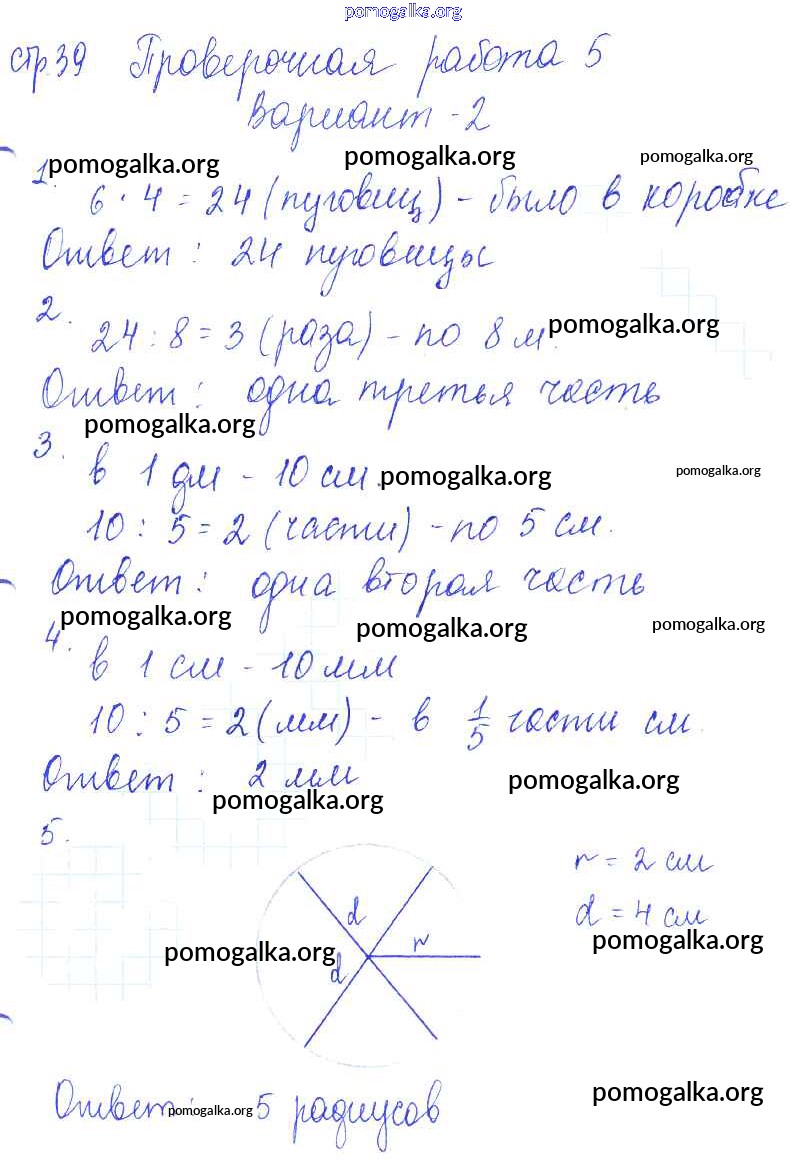 pomogalka.org
стр.39 Проверочная работа 5
Вариант-2
pomogalka.org pomogalka.org pomogalka.org
1. 6 · 4 = 24 (пуговиц) - было в коробке
Ответ: 24 пуговицы
2. 24 : 8 = 3 (раза) - по 8 м. pomogalka.org
Ответ: одна третья часть
pomogalka.org
3. в 1 дм - 10 см. pomogalka.org pomogalka.org
10 : 5 = 2 (части) - по 5 см.
Ответ: одна вторая часть
pomogalka.org pomogalka.org pomogalka.org
4. в 1 см - 10 мм
10 : 5 = 2 (мм) - в 1/5 части см.
Ответ: 2 мм
pomogalka.org pomogalka.org
5.
r = 2 см
d = 4 см
d
r
d
pomogalka.org pomogalka.org
Ответ: 5 радиусов
pomogalka.org pomogalka.org